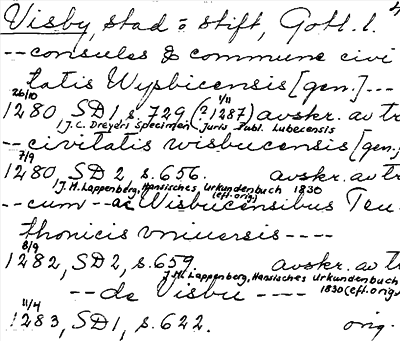 Visby, stad o stift, Gotl. l.
-- consules & commune civi
tatis Wysbicensis [gen.] ---
26/10 1/11
1280 SD 1 s. 729 (? 1287) avskr. av tr
i J.C. Dreyers Specimen Juris Publ. Lubecensis
-- civitatis wisbucensis [gen.]
7/9
1280 SD 2 s. 656. avskr. av tr
i J.M. Lappenberg, Hansisches Urkundenbuch 1830
(eft. orig.)
-- cum -- ac Wisbucensibus Teu
thonicis vniuersis ----
8/9
1282, SD 2, s. 659 avskr. av tr
i J.M. Lappenberg, Hansisches Urkundenbuch
1830 (eft. orig.
-- de Visbu ----
11/4
1283, SD 1, s. 622. orig.